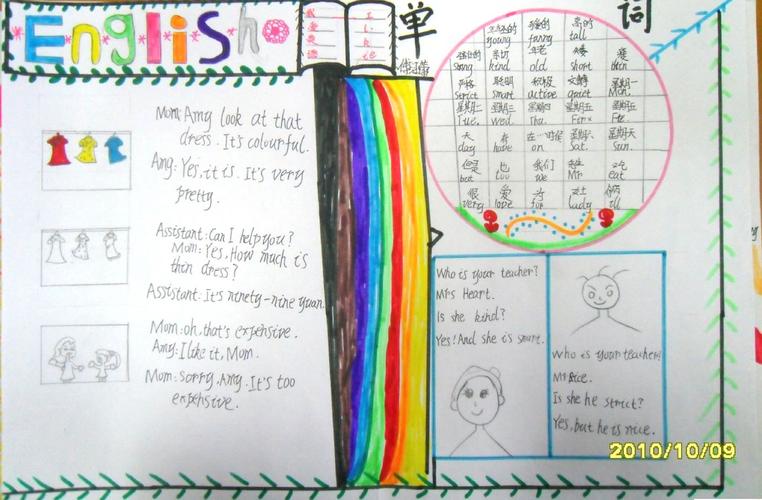 English
我 I
单
词
Mom: Amy look at that
dress. It's colourful.
Amy: Yes, it is. It's very
pretty.
Assistant: Can I help you?
Mom: Yes, How much is
thin dress?
Assistant: It's ninety-nine yuan.
Mom: oh, that's expensive.
Amy: I like it, Mom.
Mom: sorry, Amy. It's too
expensive.
年轻的 滑稽的 高的
young funny tall
强壮的 亲切 年老 矮
strong kind old short thin
严格 聪明 积极 文静 星期一
strict smart active quiet Mon.
星期二 星期三 星期四 星期五 星期五
Tue. wed. Thu.
天 有 在…时候 星期六 星期天
day have on Sat. Sun.
但是 也 我们 吃
but too we Mr eat
很 爱 为 女士
very love for lady ill
Who is your teacher?
Mrs Heart.
Is she kind?
Yes! And she is smart.
who is your teacher?
Mr Rice.
Is she he strict?
Yes, but he is nice.
2010/10/09